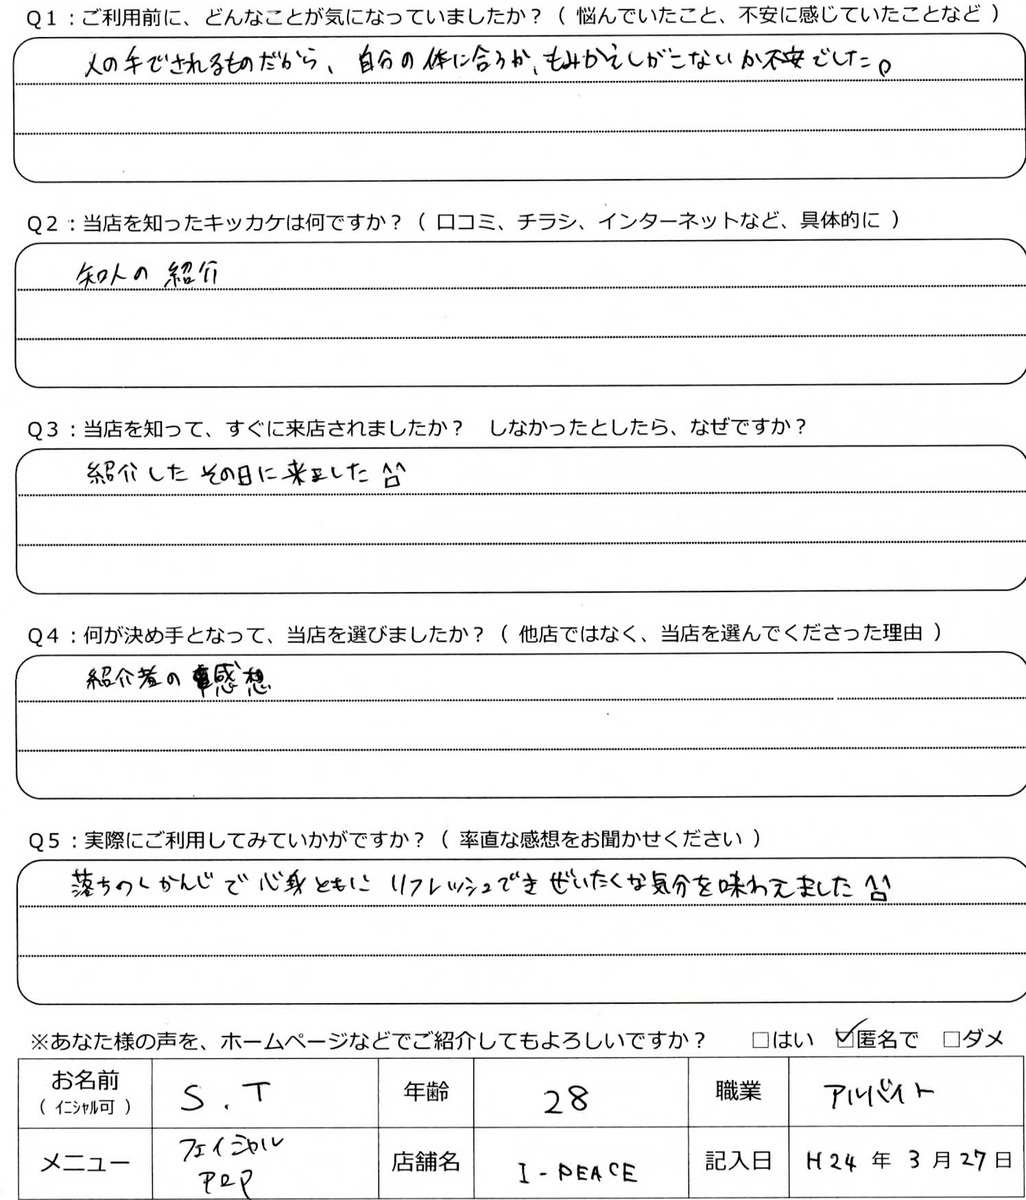 Q1：ご利用前に、どんなことが気になっていましたか？（ 悩んでいたこと、不安に感じていたことなど ）
人の手でされるものだから、自分の体に合うか、もみかえしがこないか不安でした。
Q2：当店を知ったキッカケは何ですか？（ 口コミ、チラシ、インターネットなど、具体的に ）
知人の紹介
Q3：当店を知って、すぐに来店されましたか？　しなかったとしたら、なぜですか？
紹介したその日に来ました ^^
Q4：何が決め手となって、当店を選びましたか？（ 他店ではなく、当店を選んでくださった理由 ）
紹介者の感想
Q5：実際にご利用してみていかがですか？（ 率直な感想をお聞かせください ）
落ちつくかんじで心身ともにリフレッシュできぜいたくな気分を味わえました ^^
※あなた様の声を、ホームページなどでご紹介してもよろしいですか？　□はい　☑匿名で　□ダメ
お名前（ ｲﾆｼｬﾙ可 ） S.T 年齢 28 職業 アルバイト
メニュー フェイシャル 店舗名 I-PEACE 記入日 H24年3月27日